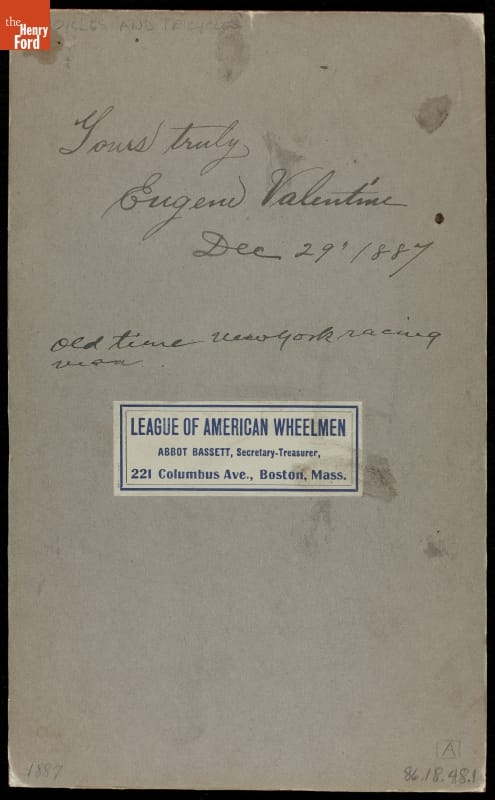 the
Henry
Ford
BICYCLES AND TRICYCLES
Yours truly
Eugene Valentine
Dec 29' 1887
Old time New York racing
man.
LEAGUE OF AMERICAN WHEELMEN
ABBOT BASSETT, Secretary-Treasurer,
221 Columbus Ave., Boston, Mass.
A
1887
86.18.48.1